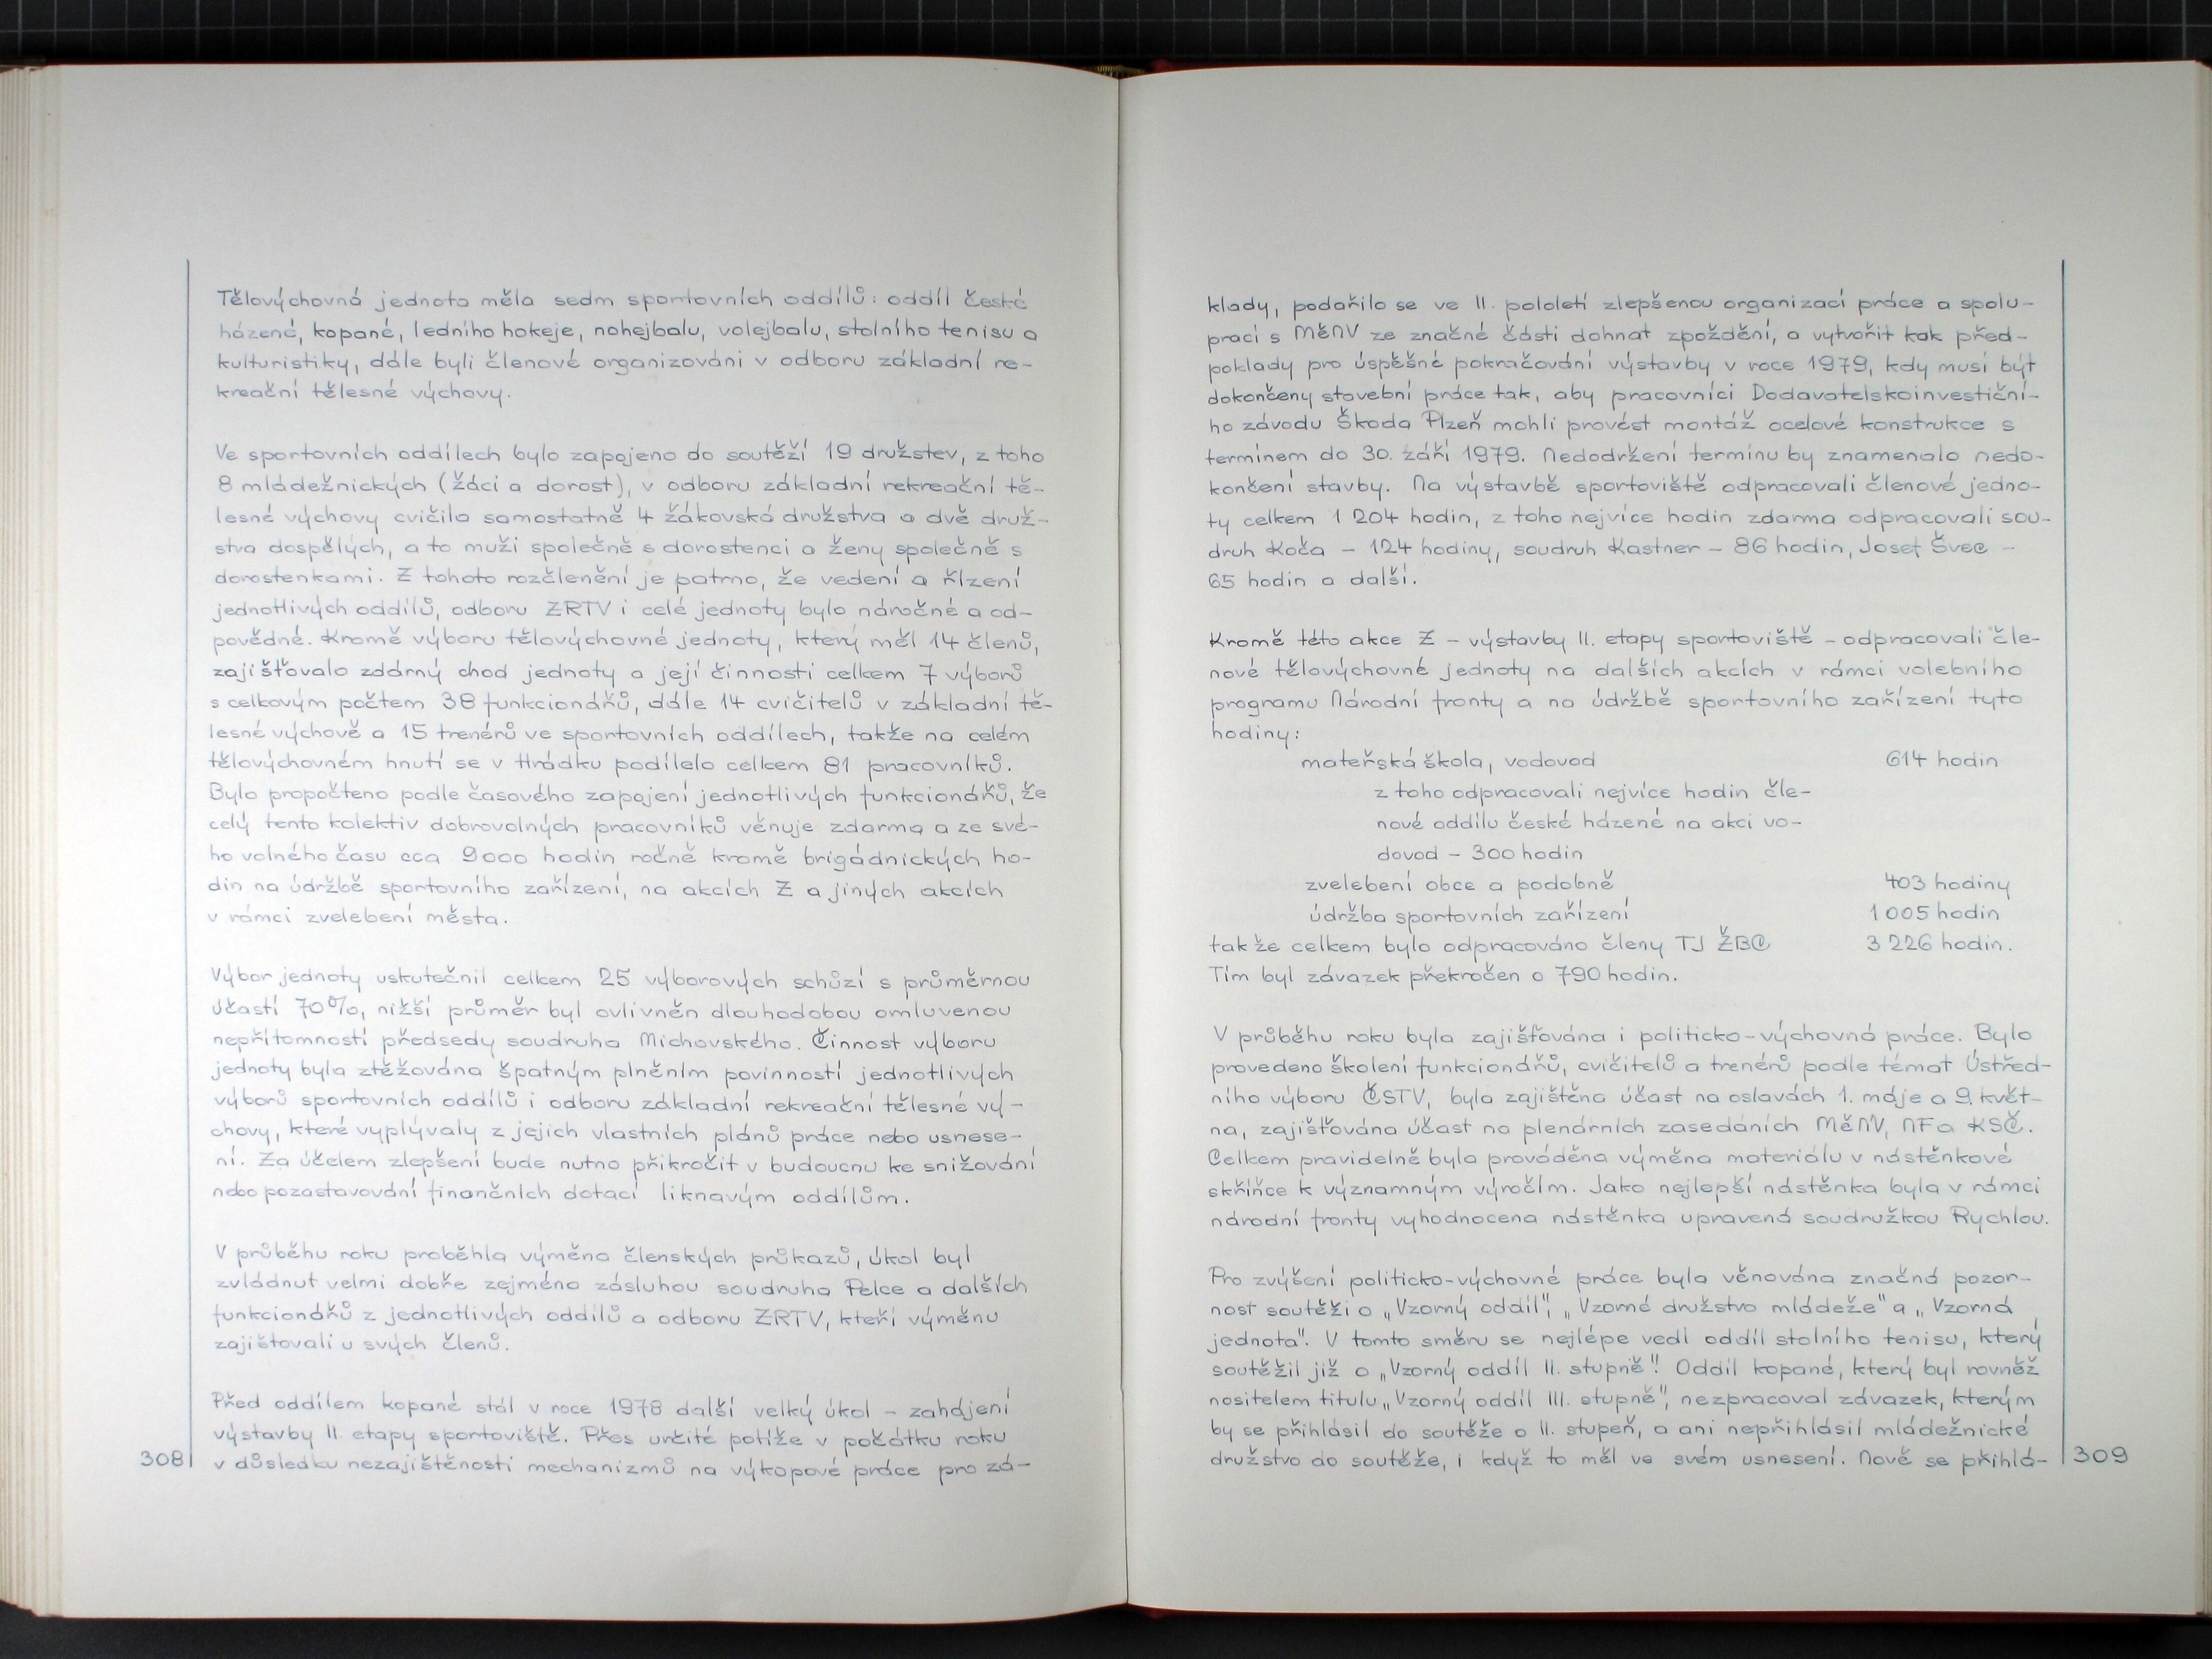 Tělovýchovná jednota měla sedm sportovních oddílů: oddíl české
házené, kopané, ledního hokeje, nohejbalu, volejbalu, stolního tenisu a
kulturistiky, dále byli členové organizováni v odboru základní re-
kreační tělesné výchovy.
Ve sportovních oddílech bylo zapojeno do soutěží 19 družstev, z toho
8 mládežnických (žáci a dorost), v odboru základní rekreační tě-
lesné výchovy cvičila samostatně 4 žákovská družstva a dvě druž-
stva dospělých, a to muži společně s dorostenci a ženy společně s
dorostenkami. Z tohoto rozčlenění je patrno, že vedení a řízení
jednotlivých oddílů, odboru ZRTV i celé jednoty bylo náročné a od-
povědné. Kromě výboru tělovýchovné jednoty, který měl 14 členů,
zajišťovalo zdárný chod jednoty a její činnosti celkem 7 výborů
s celkovým počtem 38 funkcionářů, dále 14 cvičitelů v základní tě-
lesné výchově a 15 trenérů ve sportovních oddílech, takže na celém
tělovýchovném hnutí se v Hrádku podílelo celkem 81 pracovníků.
Bylo propočteno podle časového zapojení jednotlivých funkcionářů, že
celý tento kolektiv dobrovolných pracovníků věnuje zdarma a ze své-
ho volného času cca 9000 hodin ročně kromě brigádnických ho-
din na údržbě sportovního zařízení, na akcích Z a jiných akcích
v rámci zvelebení města.
Výbor jednoty uskutečnil celkem 25 výborových schůzí s průměrnou
účastí 70%, nižší průměr byl ovlivněn dlouhodobou omluvenou
nepřítomností předsedy soudruha Michovského. Činnost výboru
jednoty byla ztěžována špatným plněním povinností jednotlivých
výborů sportovních oddílů i odboru základní rekreační tělesné vý-
chovy, které vyplývaly z jejich vlastních plánů práce nebo usnese-
ní. Za účelem zlepšení bude nutno přikročit v budoucnu ke snižování
nebo pozastavování finančních dotací liknavým oddílům.
V průběhu roku proběhla výměna členských průkazů, úkol byl
zvládnut velmi dobře zejména zásluhou soudruha Pelce a dalších
funkcionářů z jednotlivých oddílů a odboru ZRTV, kteří výměnu
zajištovali u svých členů.
Před oddílem kopané stál v roce 1978 další velký úkol - zahájení
výstavby II. etapy sportoviště. Přes určité potíže v počátku roku
v důsledku nezajištěnosti mechanizmů na výkopové práce pro zá-
308
klady, podařilo se ve II. pololetí zlepšenou organizací práce a spolu-
prací s MěNV ze značné části dohnat zpoždění, a vytvořit tak před-
poklady pro úspěšné pokračování výstavby v roce 1979, kdy musí být
dokončeny stavební práce tak, aby pracovníci Dodavatelskoinvestiční-
ho závodu Škoda Plzeň mohli provést montáž ocelové konstrukce s
termínem do 30. září 1979. Nedodržení termínu by znamenalo nedo-
končení stavby. Na výstavbě sportoviště odpracovali členové jedno-
ty celkem 1 204 hodin, z toho nejvíce hodin zdarma odpracovali sou-
druh Koča - 124 hodiny, soudruh Kastner - 86 hodin, Josef Švec -
65 hodin a další.
Kromě této akce Z - výstavby II. etapy sportoviště - odpracovali čle-
nové tělovýchovné jednoty na dalších akcích v rámci volebního
programu Národní fronty a na údržbě sportovního zařízení tyto
hodiny:
mateřská škola, vodovod 614 hodin
z toho odpracovali nejvíce hodin čle-
nové oddílu české házené na akci vo-
dovod - 300 hodin
zvelebení obce a podobně 403 hodiny
údržba sportovních zařízení 1 005 hodin
takže celkem bylo odpracováno členy TJ ŽBC 3 226 hodin.
Tím byl závazek překročen o 790 hodin.
V průběhu roku byla zajišťována i politicko-výchovná práce. Bylo
provedeno školení funkcionářů, cvičitelů a trenérů podle témat Ústřed-
ního výboru ČSTV, byla zajištěna účast na oslavách 1. máje a 9. květ-
na, zajišťována účast na plenárních zasedáních MěNV, NF a KSČ.
Celkem pravidelně byla prováděna výměna materiálu v nástěnkové
skříňce k významným výročím. Jako nejlepší nástěnka byla v rámci
národní fronty vyhodnocena nástěnka upravená soudružkou Rychlou.
Pro zvýšení politicko-výchovné práce byla věnována značná pozor-
nost soutěži o „Vzorný oddíl", „Vzorné družstvo mládeže" a „Vzorná
jednota". V tomto směru se nejlépe vedl oddíl stolního tenisu, který
soutěžil již o „Vzorný oddíl II. stupně". Oddíl kopané, který byl rovněž
nositelem titulu „Vzorný oddíl III. stupně", nezpracoval závazek, kterým
by se přihlásil do soutěže o II. stupeň, a ani nepřihlásil mládežnické
družstvo do soutěže, i když to měl ve svém usnesení. Nově se přihlá-
309